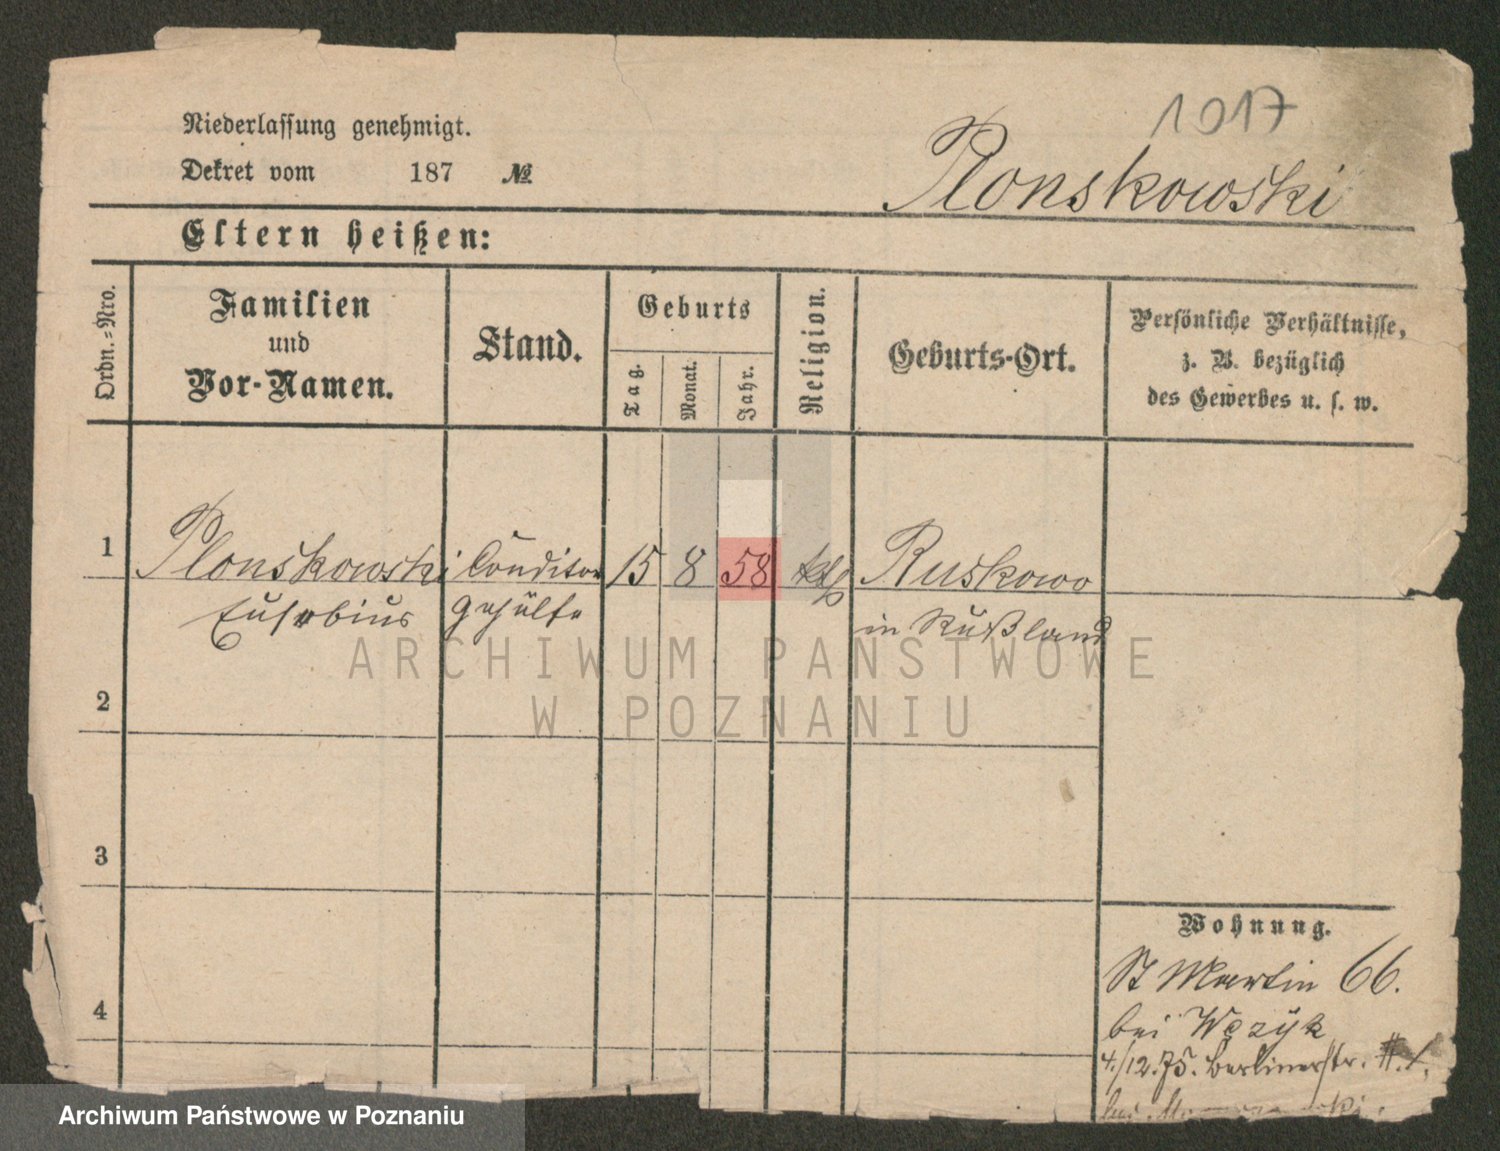 1017
Niederlassung genehmigt.
Dekret vom 187 №
Plonskowski
Eltern heißen:
Ordn.=Nro.
Familien
und
Vor-Namen.
Stand.
Geburts
Tag.
Monat.
Jahr.
Religion.
Geburts-Ort.
Persönliche Verhältnisse,
z. B. bezüglich
des Gewerbes u. s. w.
1 Plonskowski Conditor 15 8 58 kth Ruskowo
Eusebius Gehülfe in Rußland
ARCHIWUM PAŃSTWOWE
W POZNANIU
2
3
4
Wohnung.
St Martin 66.
bei Węzyk
4./12.75. Berlinerstr. 
bei
Archiwum Państwowe w Poznaniu